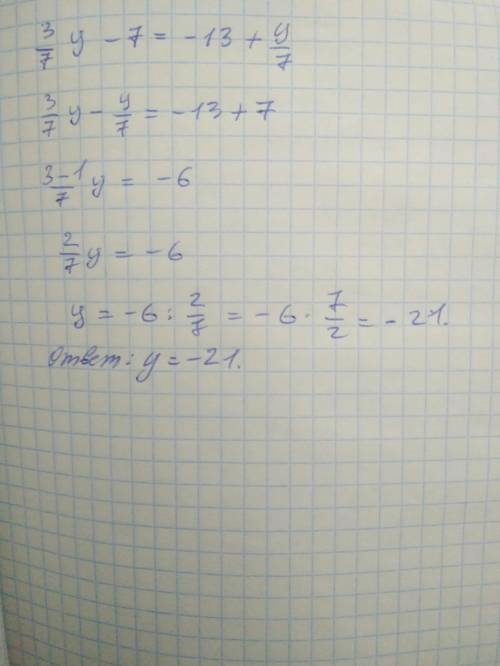 3/7 y - 7 = -13 + y/7
3/7 y - y/7 = -13 + 7
3-1/7 y = -6
2/7 y = -6
y = -6 : 2/7 = -6 · 7/2 = -21.
Ответ: y = -21.